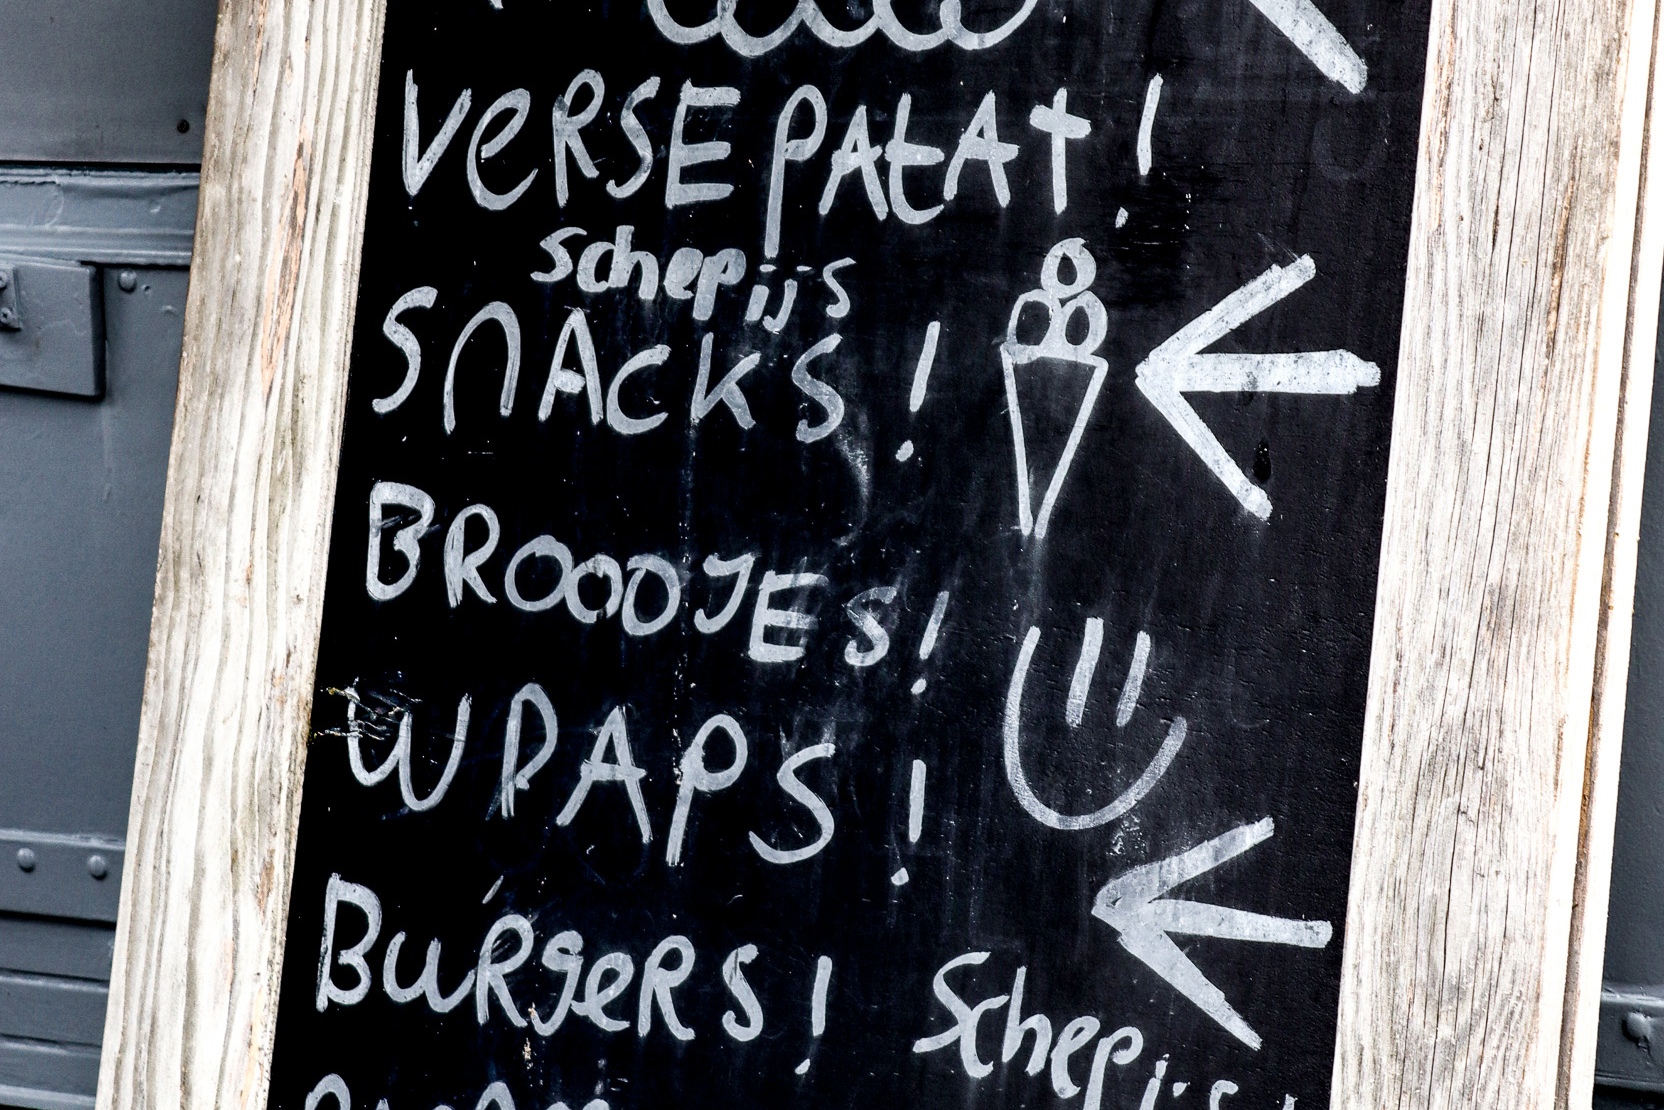 VERSE PATAT!
schepijs
SNACKS!
BROODJES!
WRAPS!
BURGERS!
Schepijs!